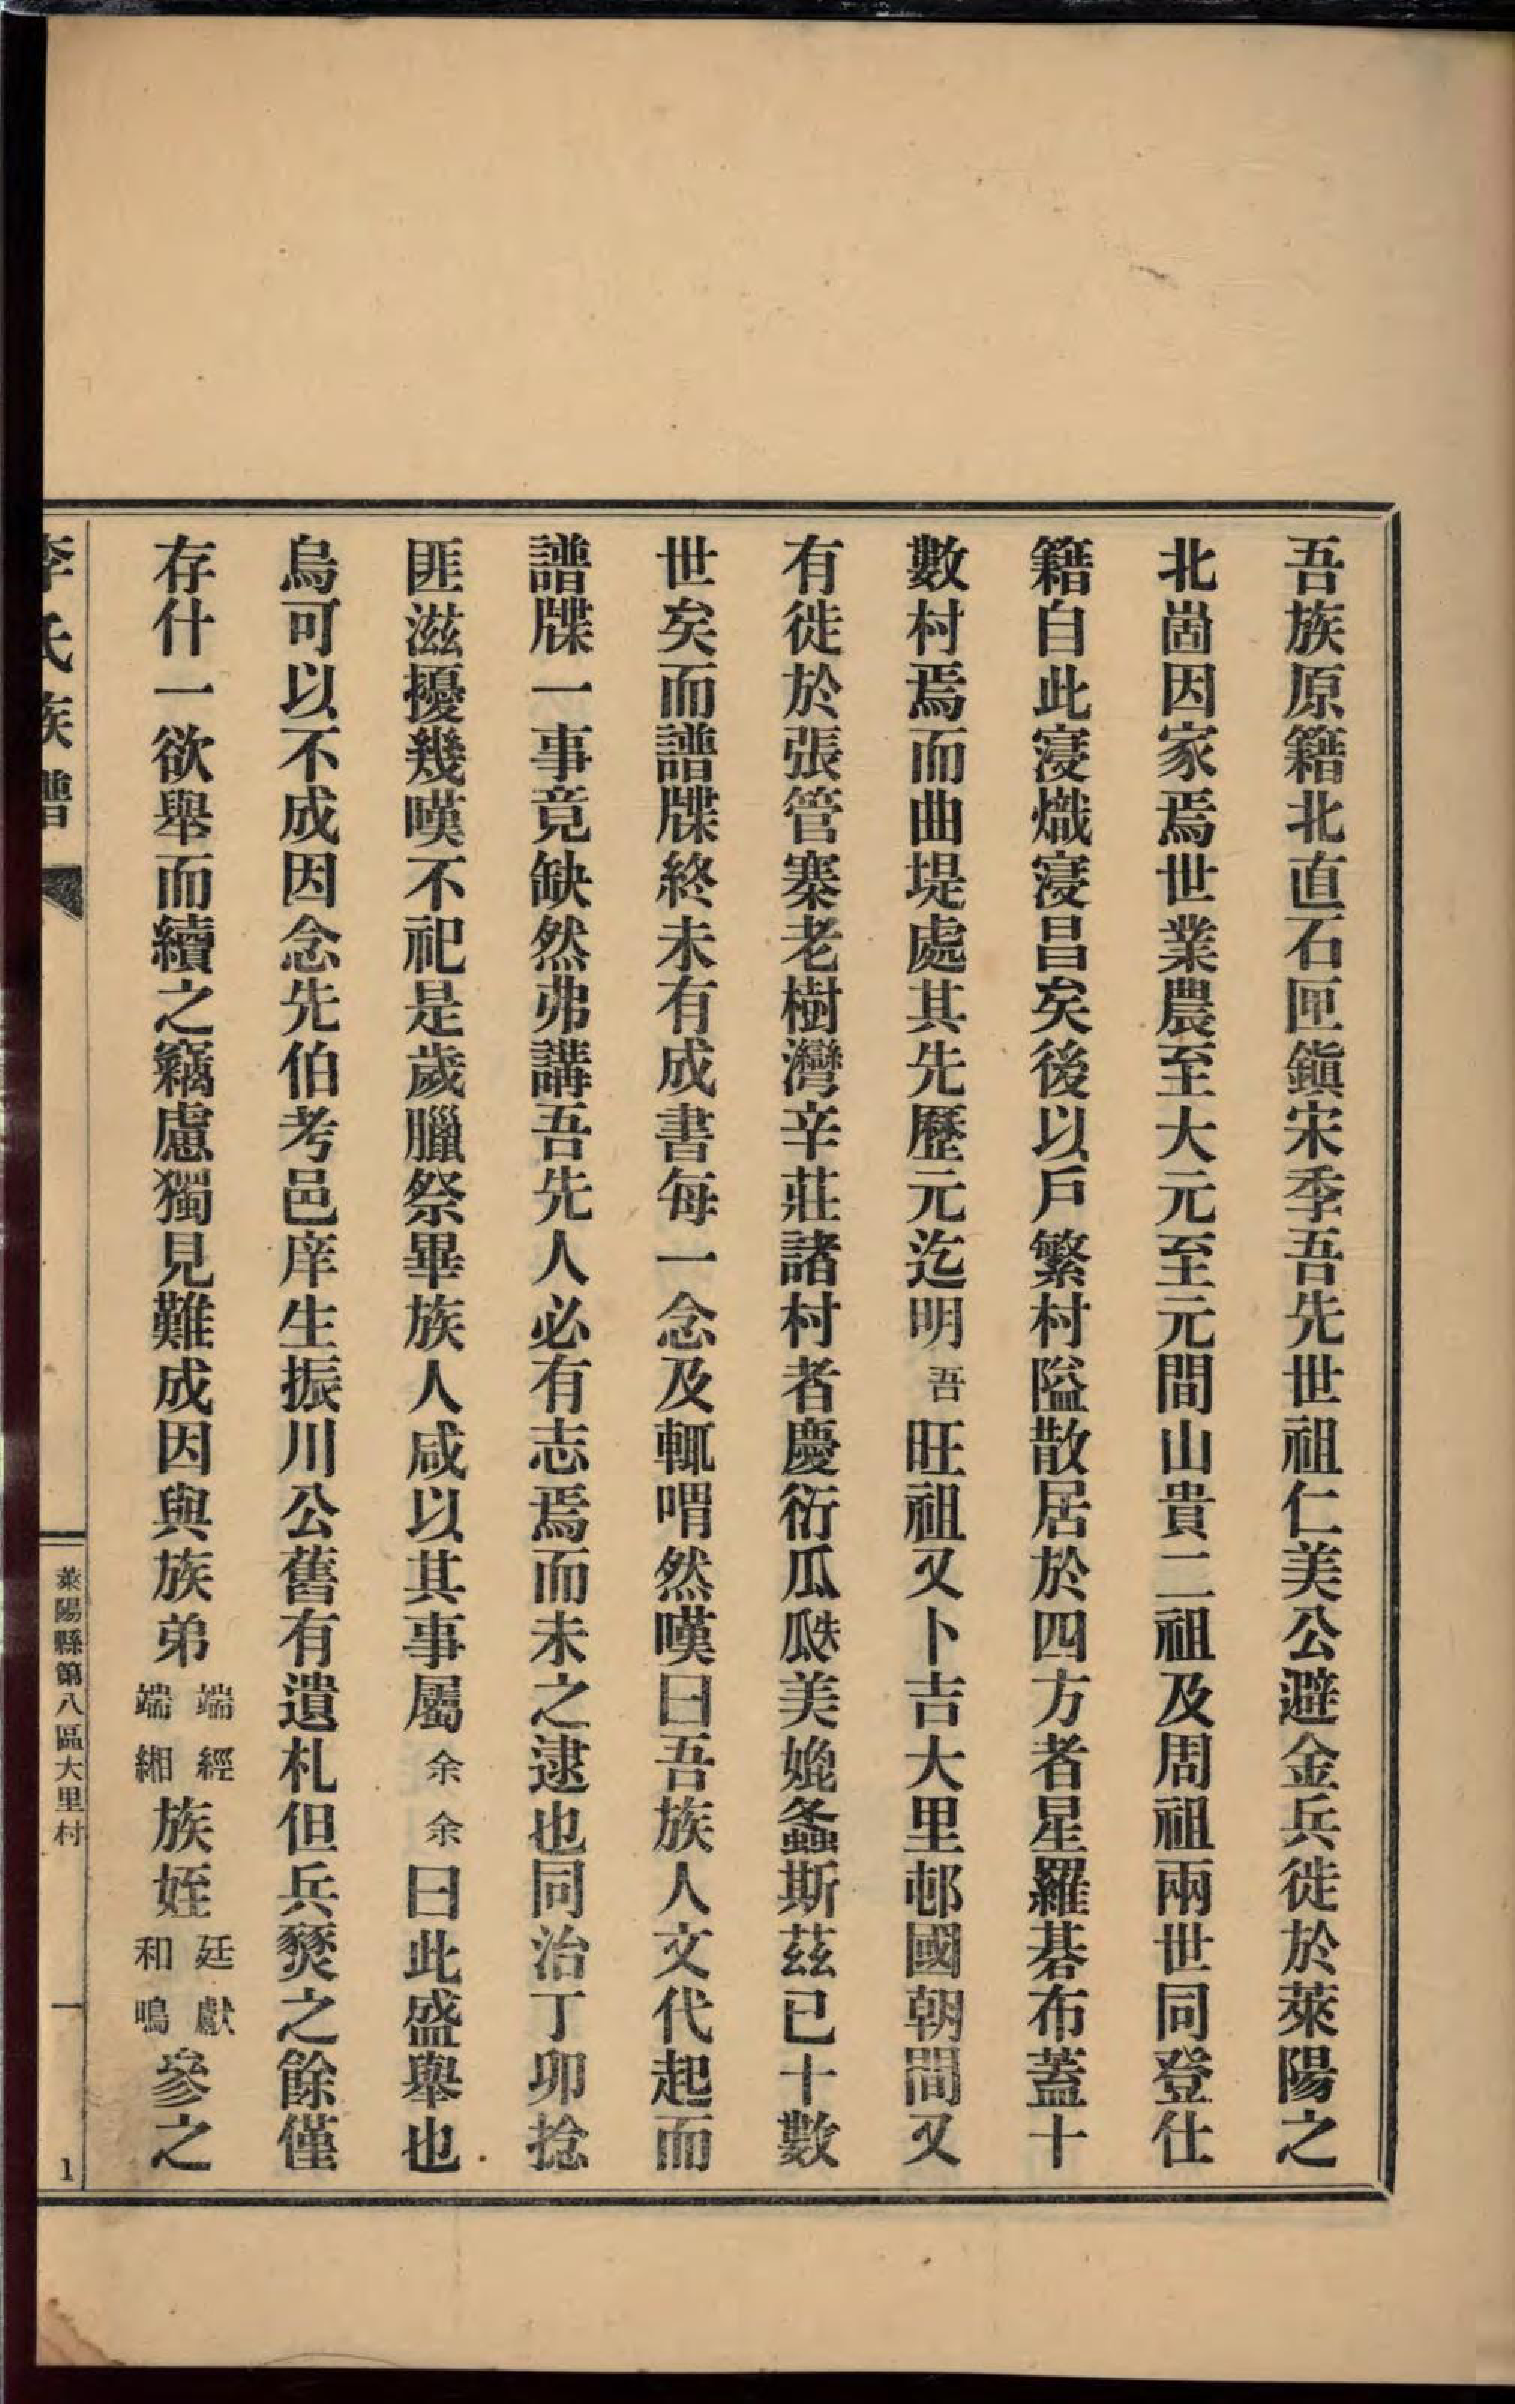 吾族原籍北直石匣鎭宋季吾先世祖仁美公避金兵徙於萊陽之
北崮因家焉世業農至大元至元間山貴二祖及周祖兩世同登仕
籍自此寖熾寖昌矣後以戶繁村隘散居於四方者星羅碁布蓋十
數村焉而曲堤處其先歷元迄明吾旺祖又卜吉大里邨國朝間又
有徙於張管寨老樹灣辛莊諸村者慶衍瓜瓞美媲螽斯茲已十數
世矣而譜牒終未有成書每一念及輒喟然嘆曰吾族人文代起而
譜牒一事竟缺然弗講吾先人必有志焉而未之逮也同治丁卯捻
匪滋擾幾嘆不祀是歲臘祭畢族人咸以其事屬余余曰此盛舉也
烏可以不成因念先伯考邑庠生振川公舊有遺札但兵燹之餘僅
存什一欲舉而續之竊慮獨見難成因與族弟端經端緗族姪廷獻和鳴參之
李氏族譜
萊陽縣第八區大里村
一
1